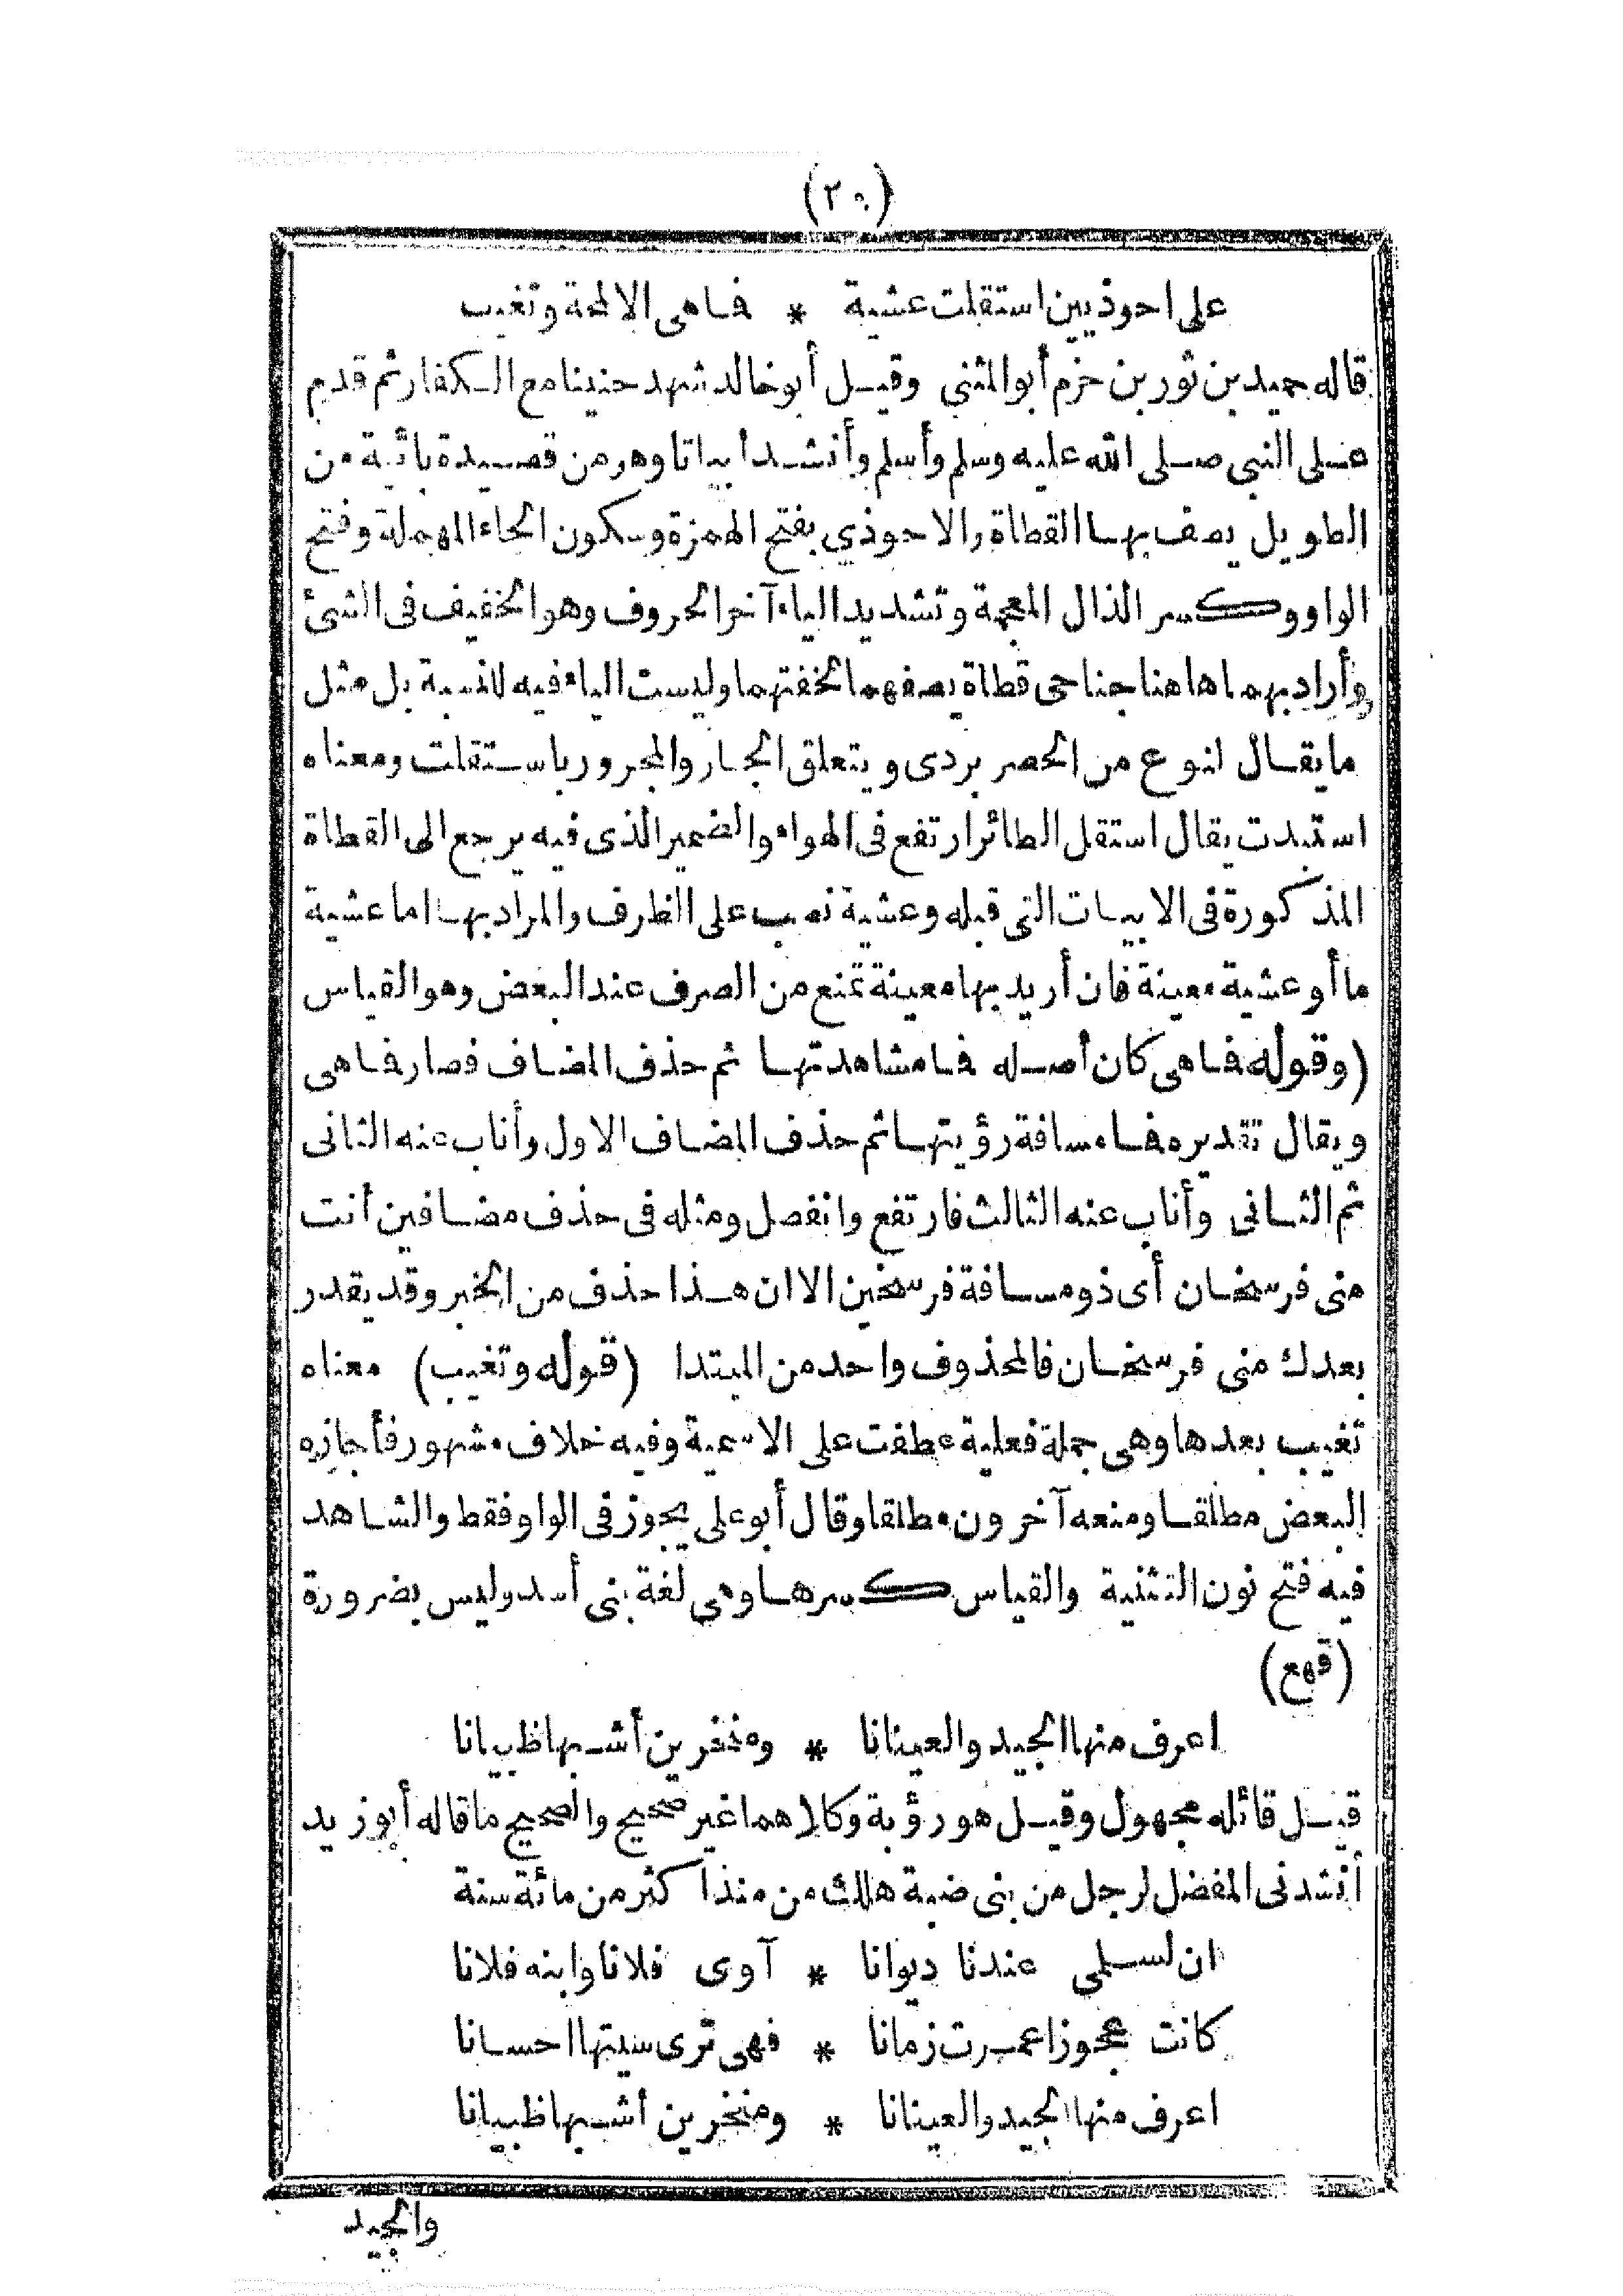 (٢٥)
على احوذيين استقلت عشية * فما هى الا لمحة وتغيب
قاله حميد بن ثور بن حزم أبو المثنى وقيل أبو خالد شهد حنينا مع الكفار ثم قدم
على النبى صلى الله عليه وسلم وأسلم وأنشد أبياتا وهو من قصيدة بائية من
الطويل يصف بها القطاة والاحوذي بفتح الهمزة وسكون الحاء المهملة وفتح
الواو وكسر الذال المعجمة وتشديد الياء آخر الحروف وهو الخفيف فى الشئ
وأراد بهما هاهنا جناحى قطاة يصفهما لخفتهما وليست الياء فيه للنسبة بل مثل
ما يقال لنوع من الحصر بردى ويتعلق الجار والمجرور باستقلت ومعناه
استبدت يقال استقل الطائر ارتفع فى الهواء والضمير الذى فيه يرجع الى القطاة
المذكورة فى الابيات التى قبله وعشية نصب على الظرف والمراد بها اما عشية
ما أو عشية معينة فان أريد بها معينة تمنع من الصرف عند البعض وهو القياس
(وقوله فما هى كان أصله فما مشاهدتها ثم حذف المضاف فصار فما هى
ويقال تقديره فما مسافة رؤيتها ثم حذف المضاف الاول وأناب عنه الثانى
ثم الثانى وأناب عنه الثالث فارتفع وانفصل ومثله فى حذف مضافين أنت
منى فرسخان أى ذو مسافة فرسخين الا ان هذا حذف من الخبر وقد يقدر
بعدك منى فرسخان فالمحذوف واحد من المبتدا (قوله وتغيب) معناه
تغيب بعدها وهى جملة فعلية عطفت على الاسمية وفيه خلاف مشهور فأجازه
البعض مطلقا ومنعه آخرون مطلقا وقال أبو على يجوز فى الواو فقط والشاهد
فيه فتح نون التثنية والقياس كسرها وهى لغة بنى أسد وليس بضرورة
(قهع)
اعرف منها الجيد والعينانا * ومنخرين أشبها ظبيانا
قيل قائله مجهول وقيل هو رؤبة وكلاهما غير صحيح والصحيح ما قاله أبو زيد
أنشدنى المفضل لرجل من بنى ضبة هلك من منذ أكثر من مائة سنة
ان لسلمى عندنا ديوانا * آوى فلانا وابنه فلانا
كانت عجوزا عمرت زمانا * فهى ترى سيتها احسانا
اعرف منها الجيد والعينانا * ومنخرين أشبها ظبيانا
والجيد